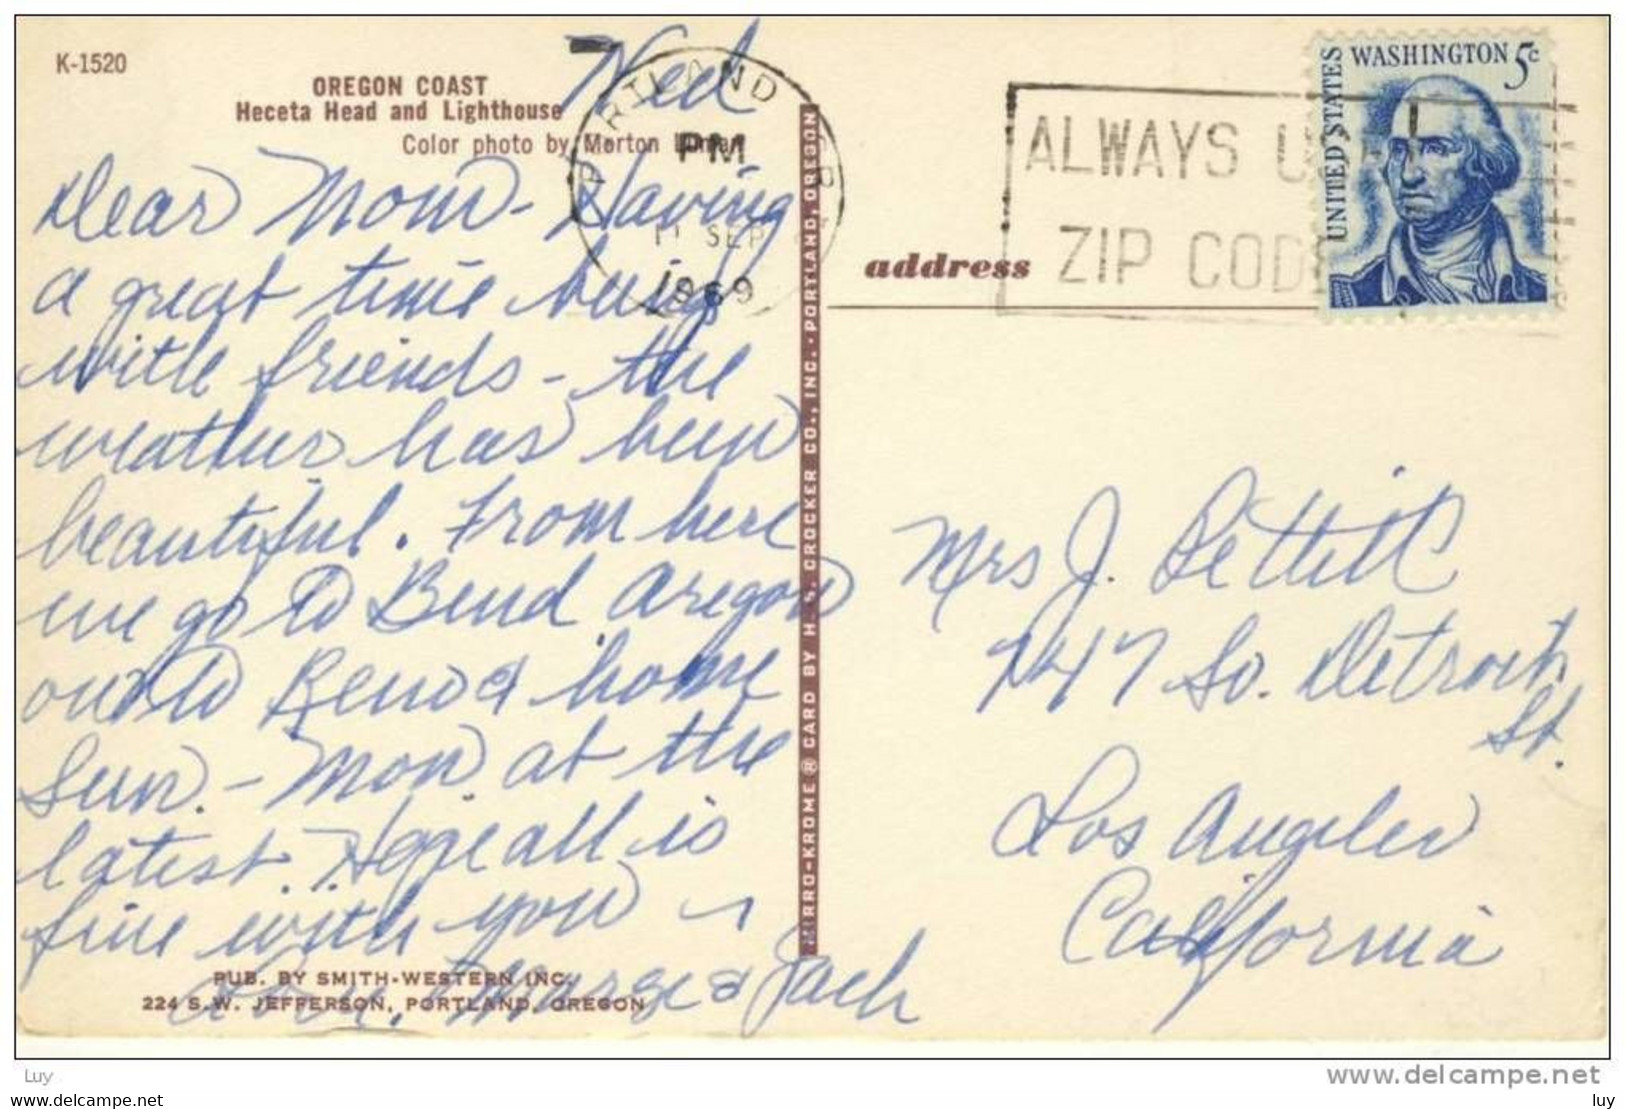 K-1520
OREGON COAST
Heceta Head and Lighthouse
Color photo by Morton
Wed
Dear Mom - Having
a great time being
with friends - the
weather has been
beautiful. From here
we go to Bend Oregon
on to Reno & home
Sun. - Mon. at the
latest. Hope all is
fine with you -
Love, Marge & Jack
PUB. BY SMITH-WESTERN INC.
224 S.W. JEFFERSON, PORTLAND, OREGON
MIRRO-KROME® CARD BY H. S. CROCKER CO., INC. - PORTLAND, OREGON
PORTLAND
PM
11 SEP
1969
ALWAYS USE
ZIP CODE
UNITED STATES
WASHINGTON 5c
address
Mrs J. Pettit
747 So. Detroit
St.
Los Angeles
California
Luy
www.delcampe.net
luy
luy